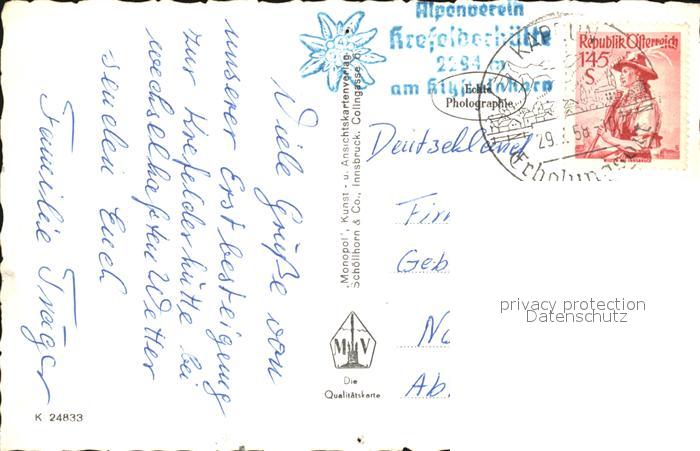 Viele Grüße von
unserer Erstbesteigung
zur Krefelderhütte bei
wechselhaften Wetter
senden Euch
Familie Träger
K 24833
"Monopol", Kunst- u. Ansichtskartenverlag
Schöllhorn & Co., Innsbruck, Colingasse
M V
Die
Qualitätskarte
Alpenverein
Krefelderhütte
2294 m
am Kitzsteinhorn
Echte
Photographie
KAPRUN
29. 58
Erholungs
Republik Österreich
1'45
S
Deutschland
Fir
Geb
No
Ab.
privacy protection
Datenschutz